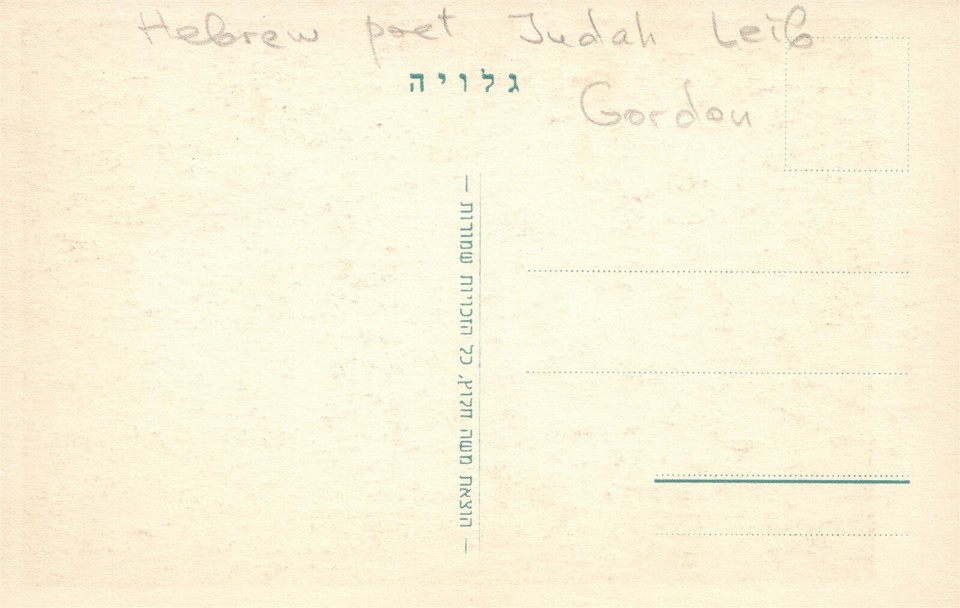 Hebrew poet Judah Leib
Gordon
גלויה
— הוצאת משה חלוץ, כל הזכויות שמורות —